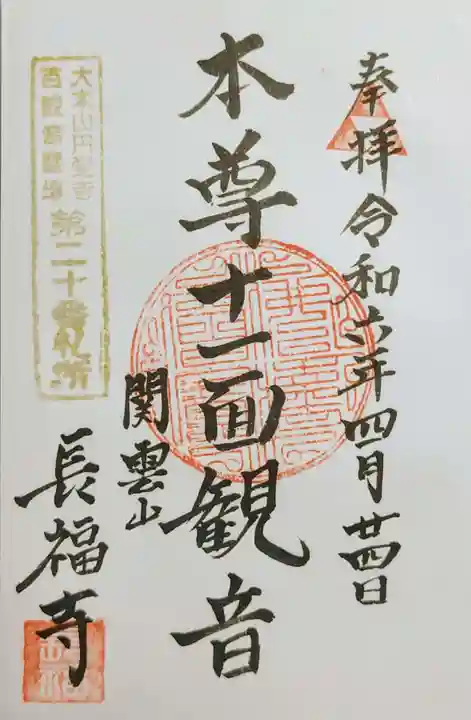 奉拝 令和六年四月廿四日
本尊十一面観音
関雲山
長福寺
大本山円覚寺
百観音霊場 第二十番札所